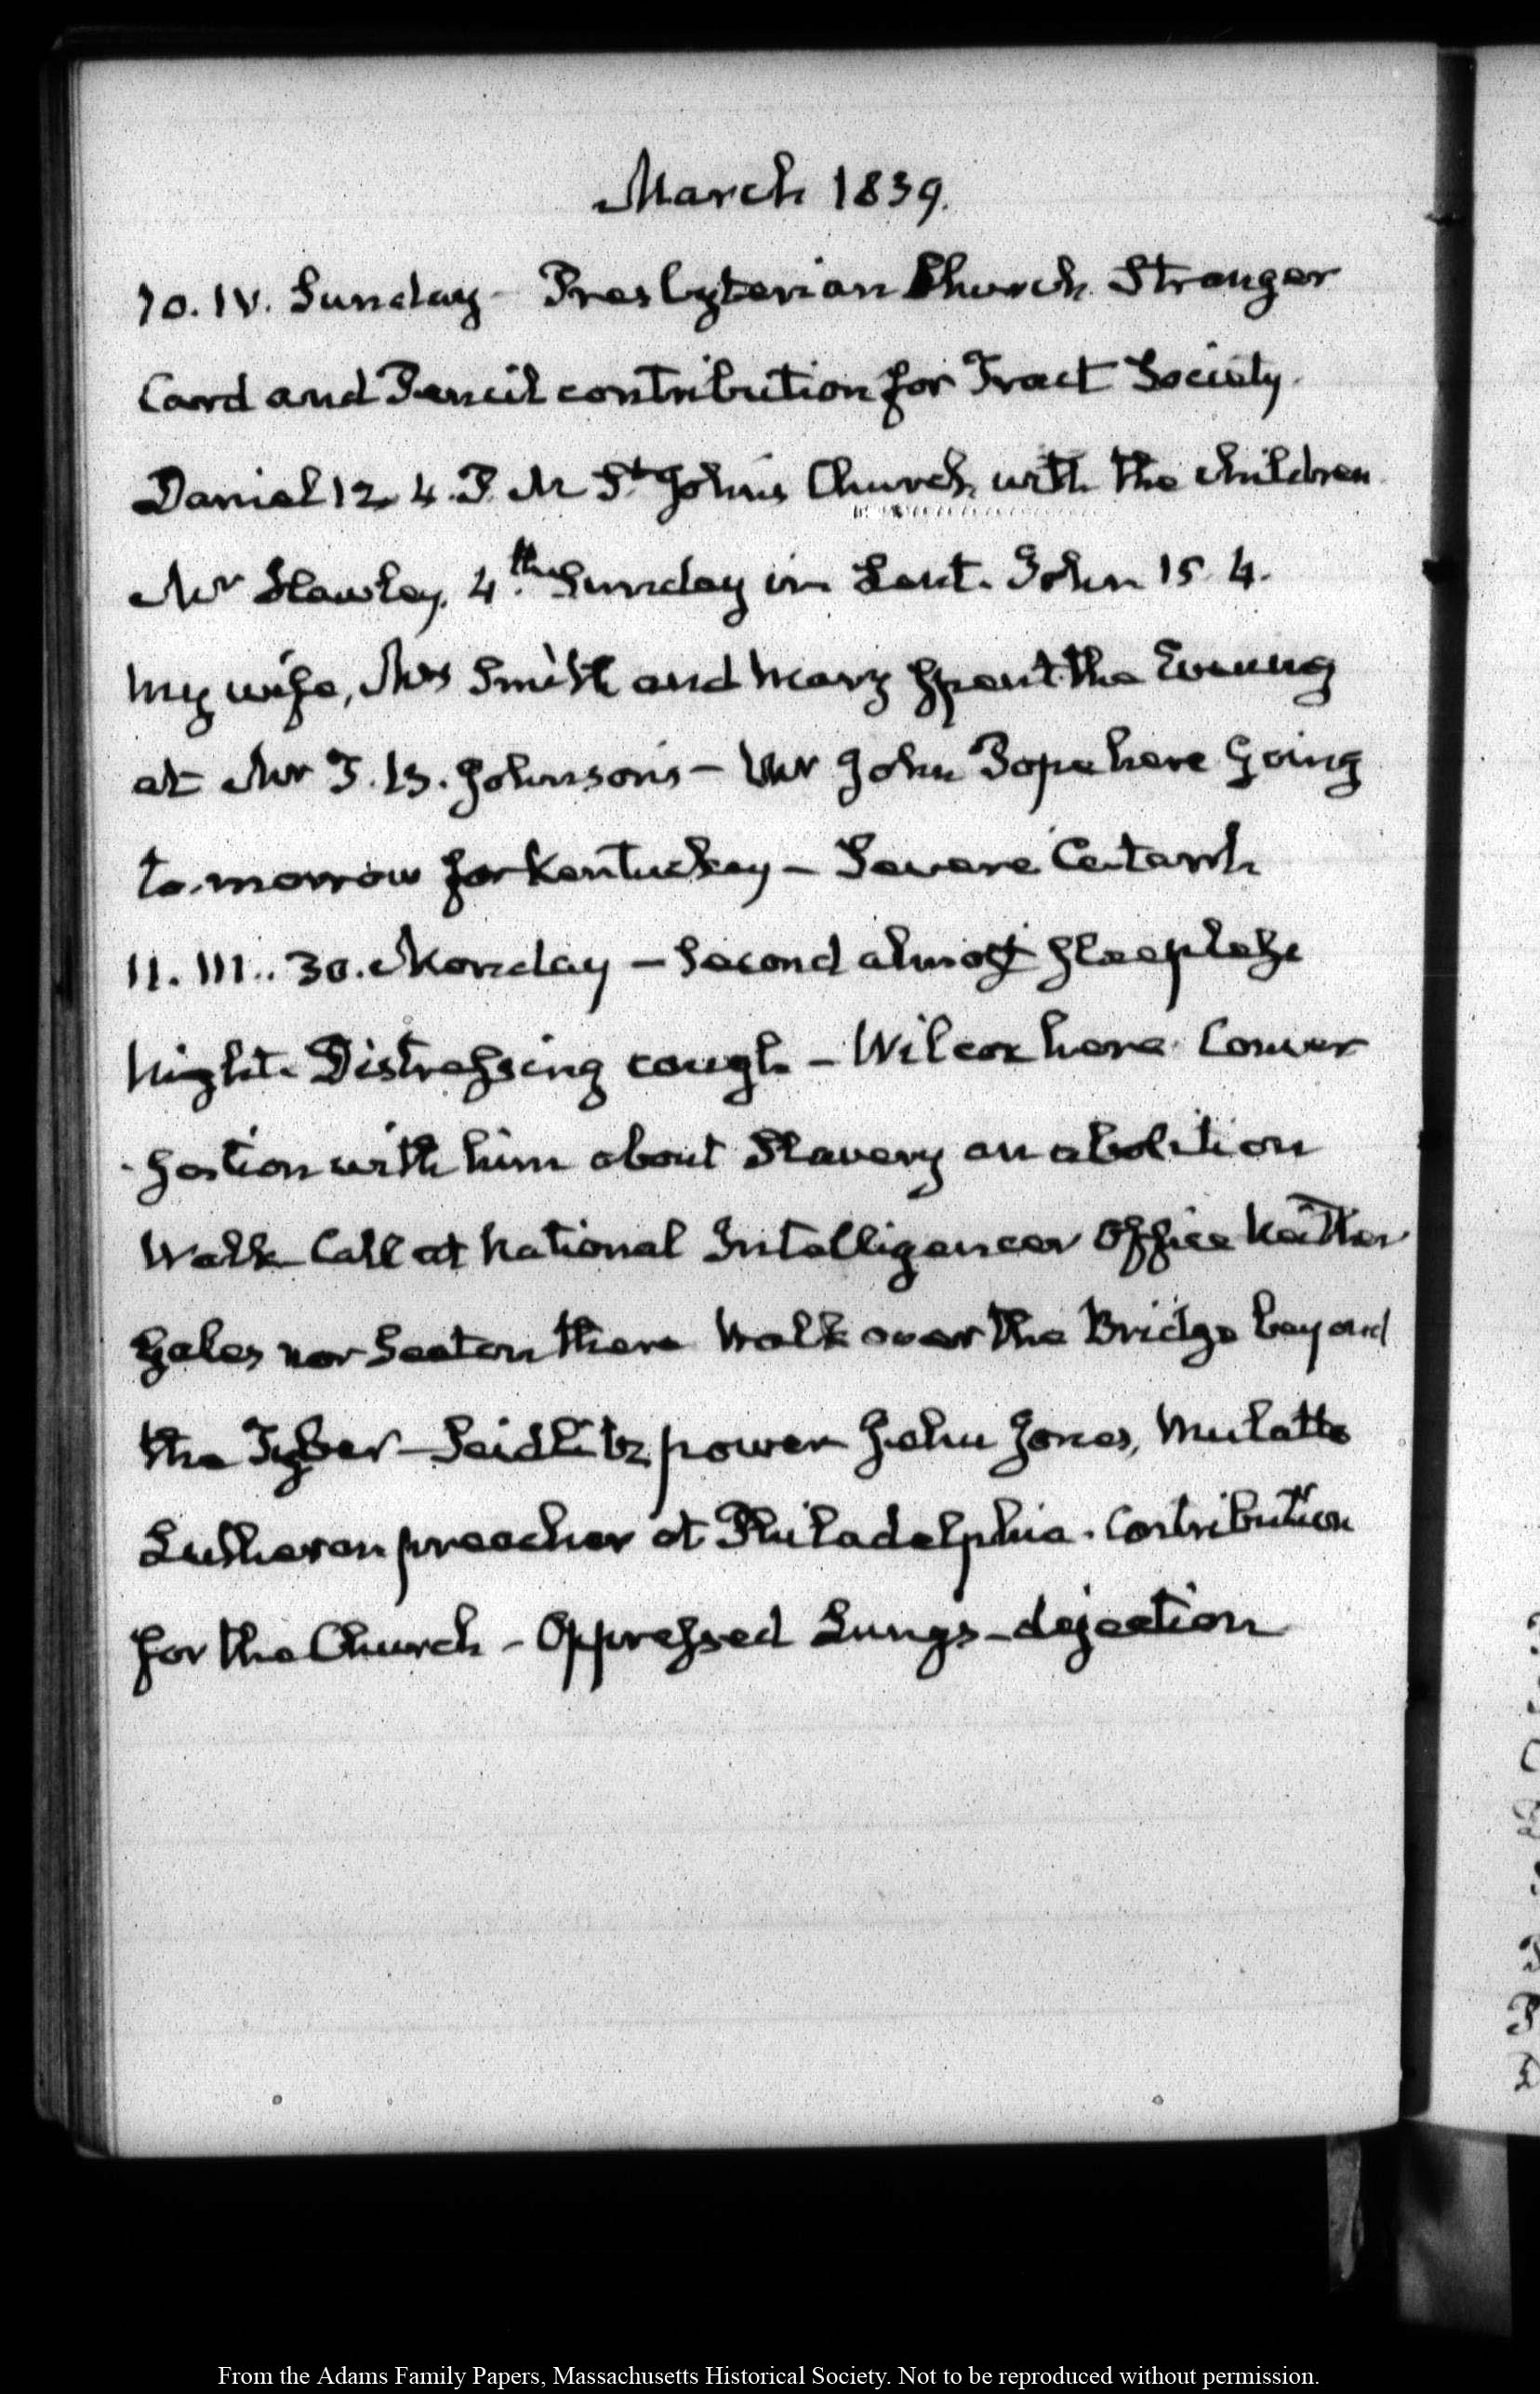 March 1839.
10. IV. Sunday - Presbyterian Church. Stranger
Card and Pencil contribution for Tract Society.
Daniel 12. 4. P. M St. John's Church with the children.
Mr Hawley. 4.th Sunday in Lent. John 15 4.
My wife, Mrs Smith and Mary spent the Evening
at Mr T. B. Johnson's — Mr John Pope here Going
to-morrow for Kentucky — Severe Catarrh
11. III.. 30. Monday — Second almost sleepless
Night. Distressing cough — Wilcox here. Conver
-sation with him about Slavery an abolition
Walk Call at National Intelligencer Office Neither
Gales nor Seaton there Walk over the Bridge beyond
the Tyber — Seidlitz power John Jones, Mulatto
Lutheran preacher at Philadelphia. Contribution
for the Church - Oppressed Lungs - dejection
From the Adams Family Papers, Massachusetts Historical Society. Not to be reproduced without permission.